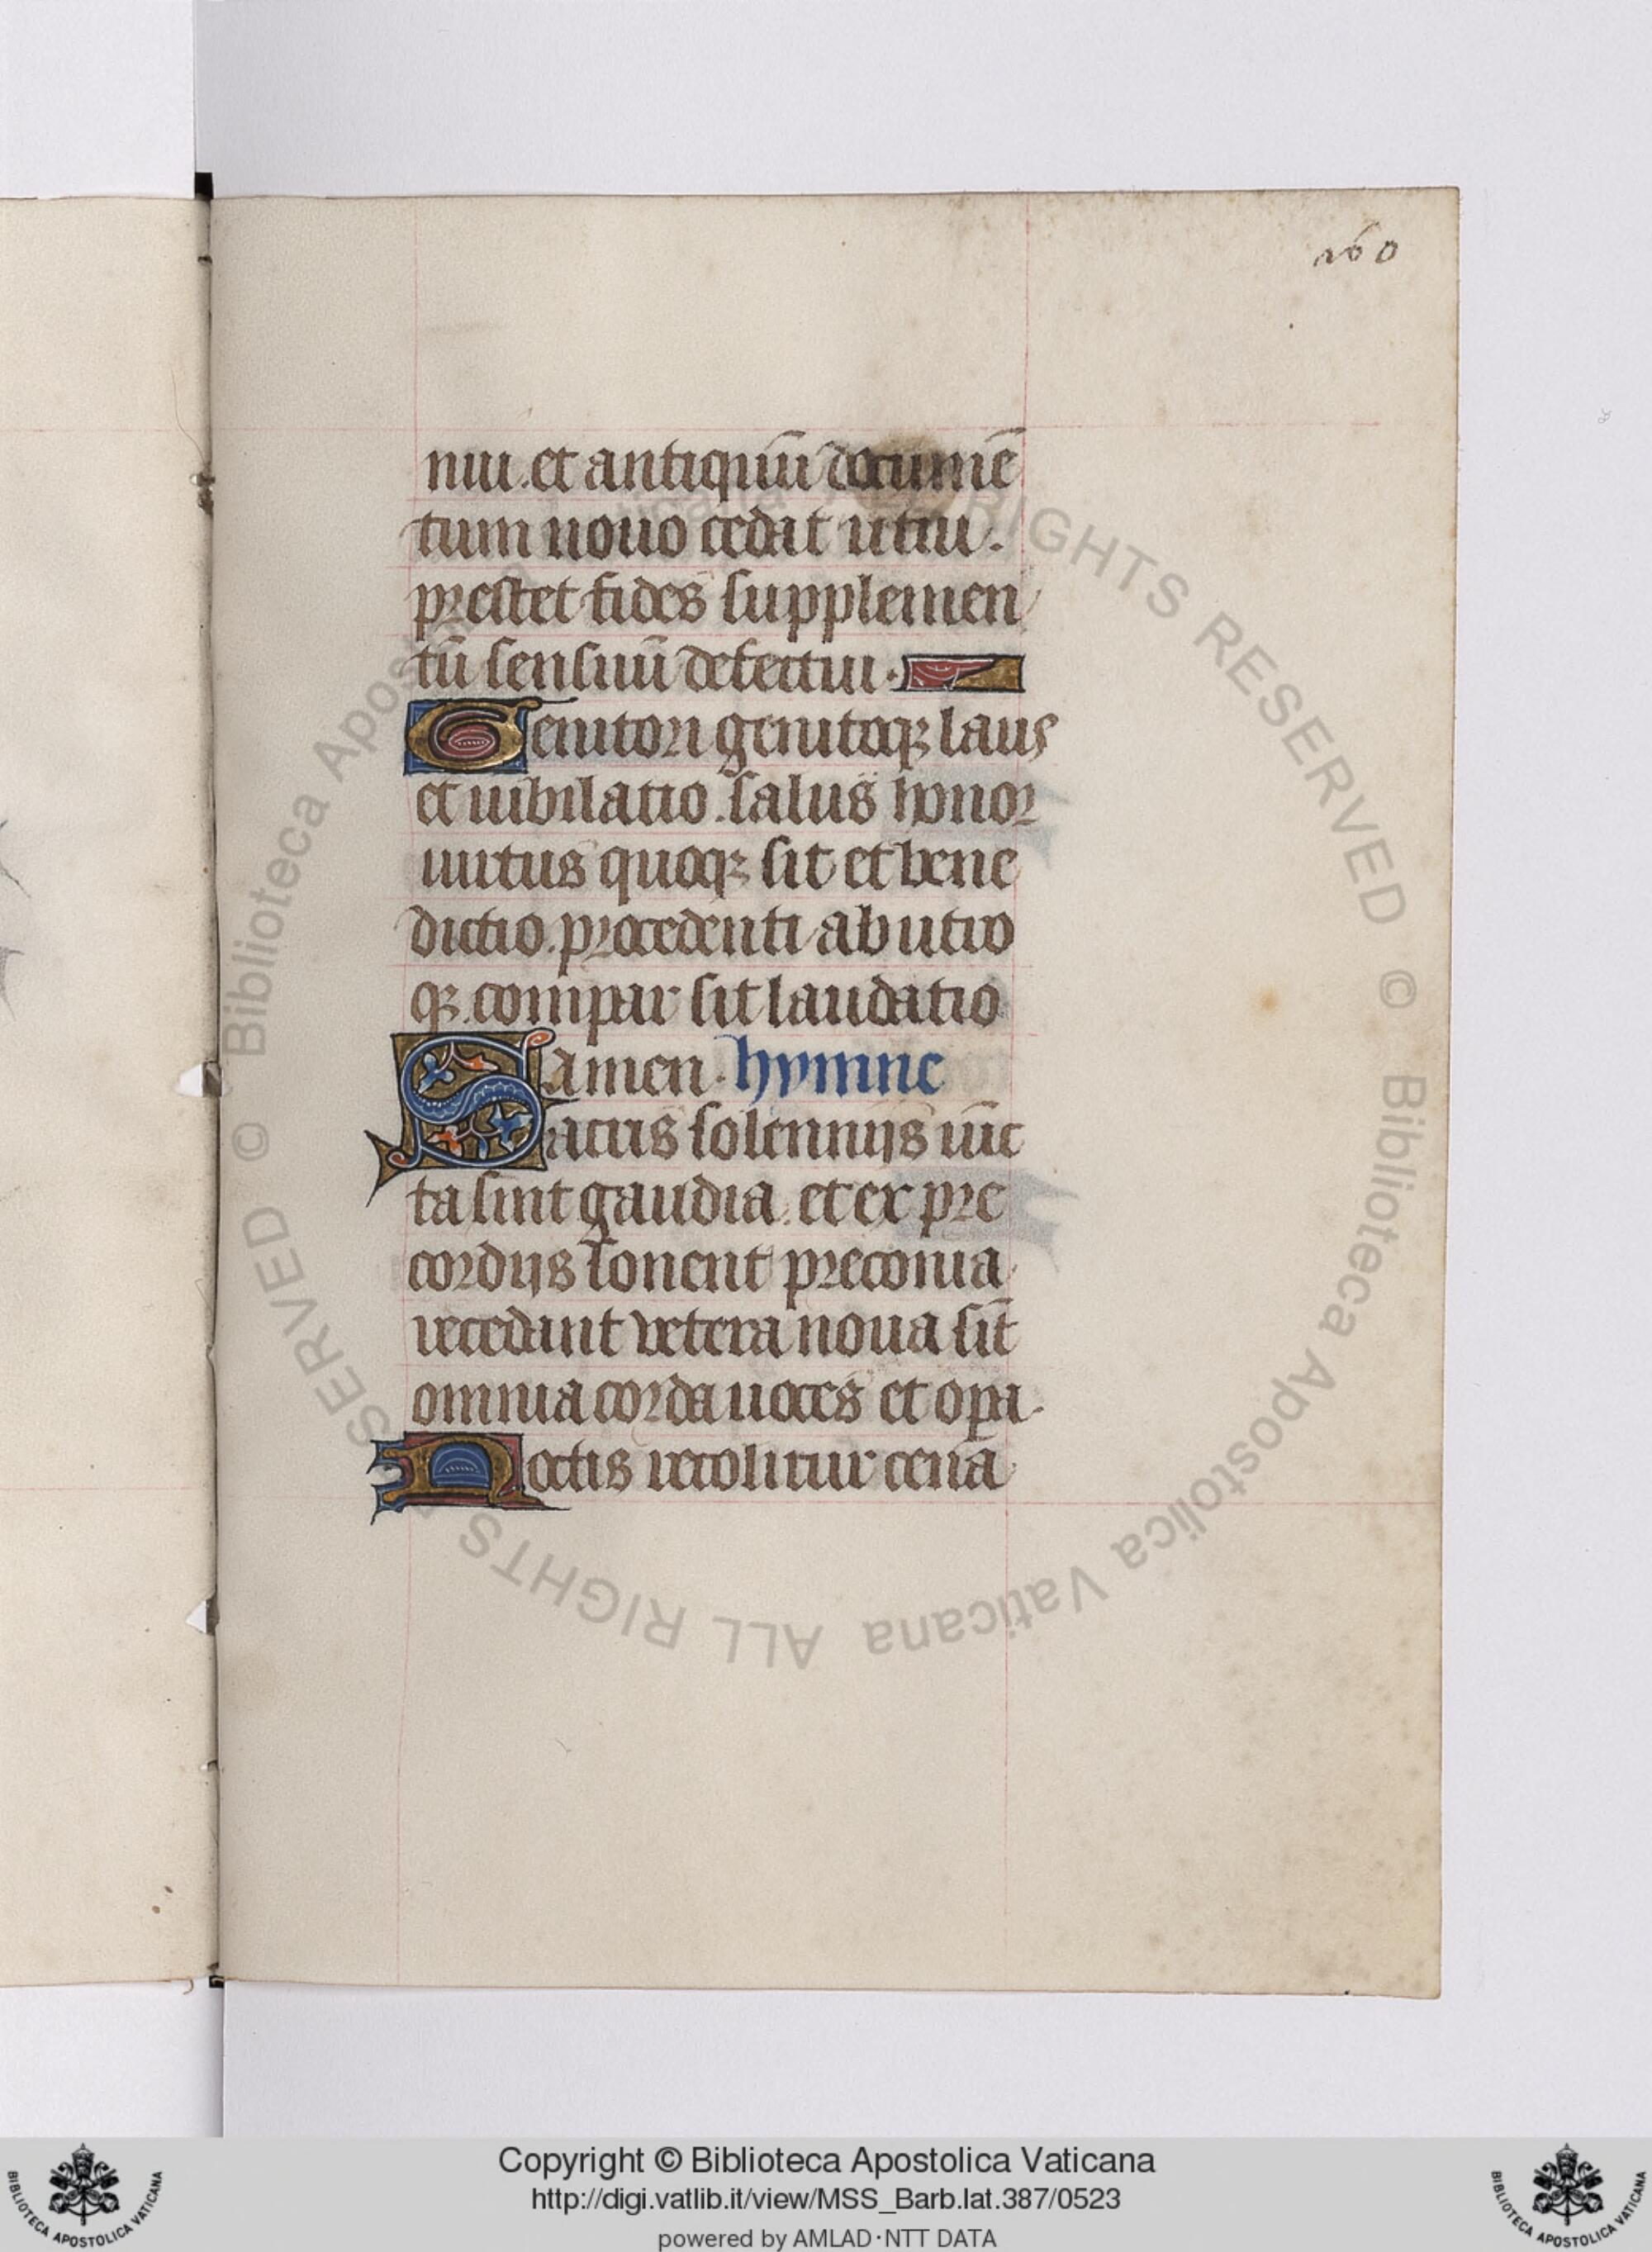 260
nui. et antiquū documē
tum nouo cedat ritui.
prestet fides supplemen
tū sensuū defectui.
Genitori genitoqꝫ laus
et iubilatio. salus honor
uirtus quoqꝫ sit et bene
dictio. procedenti ab utro
qꝫ. compar sit laudatio
amen. hymne
Sacris solennijs iūc
ta sint gaudia. et ex pre
cordijs sonent preconia.
recedant uetera noua sīt
omnia corda uoces et oꝑa.
Noctis recolitur cena
© Biblioteca Apostolica Vaticana ALL RIGHTS RESERVED
© Biblioteca Apostolica Vaticana ALL RIGHTS RESERVED
Copyright © Biblioteca Apostolica Vaticana
http://digi.vatlib.it/view/MSS_Barb.lat.387/0523
powered by AMLAD·NTT DATA
BIBLIOTECA APOSTOLICA VATICANA
BIBLIOTECA APOSTOLICA VATICANA